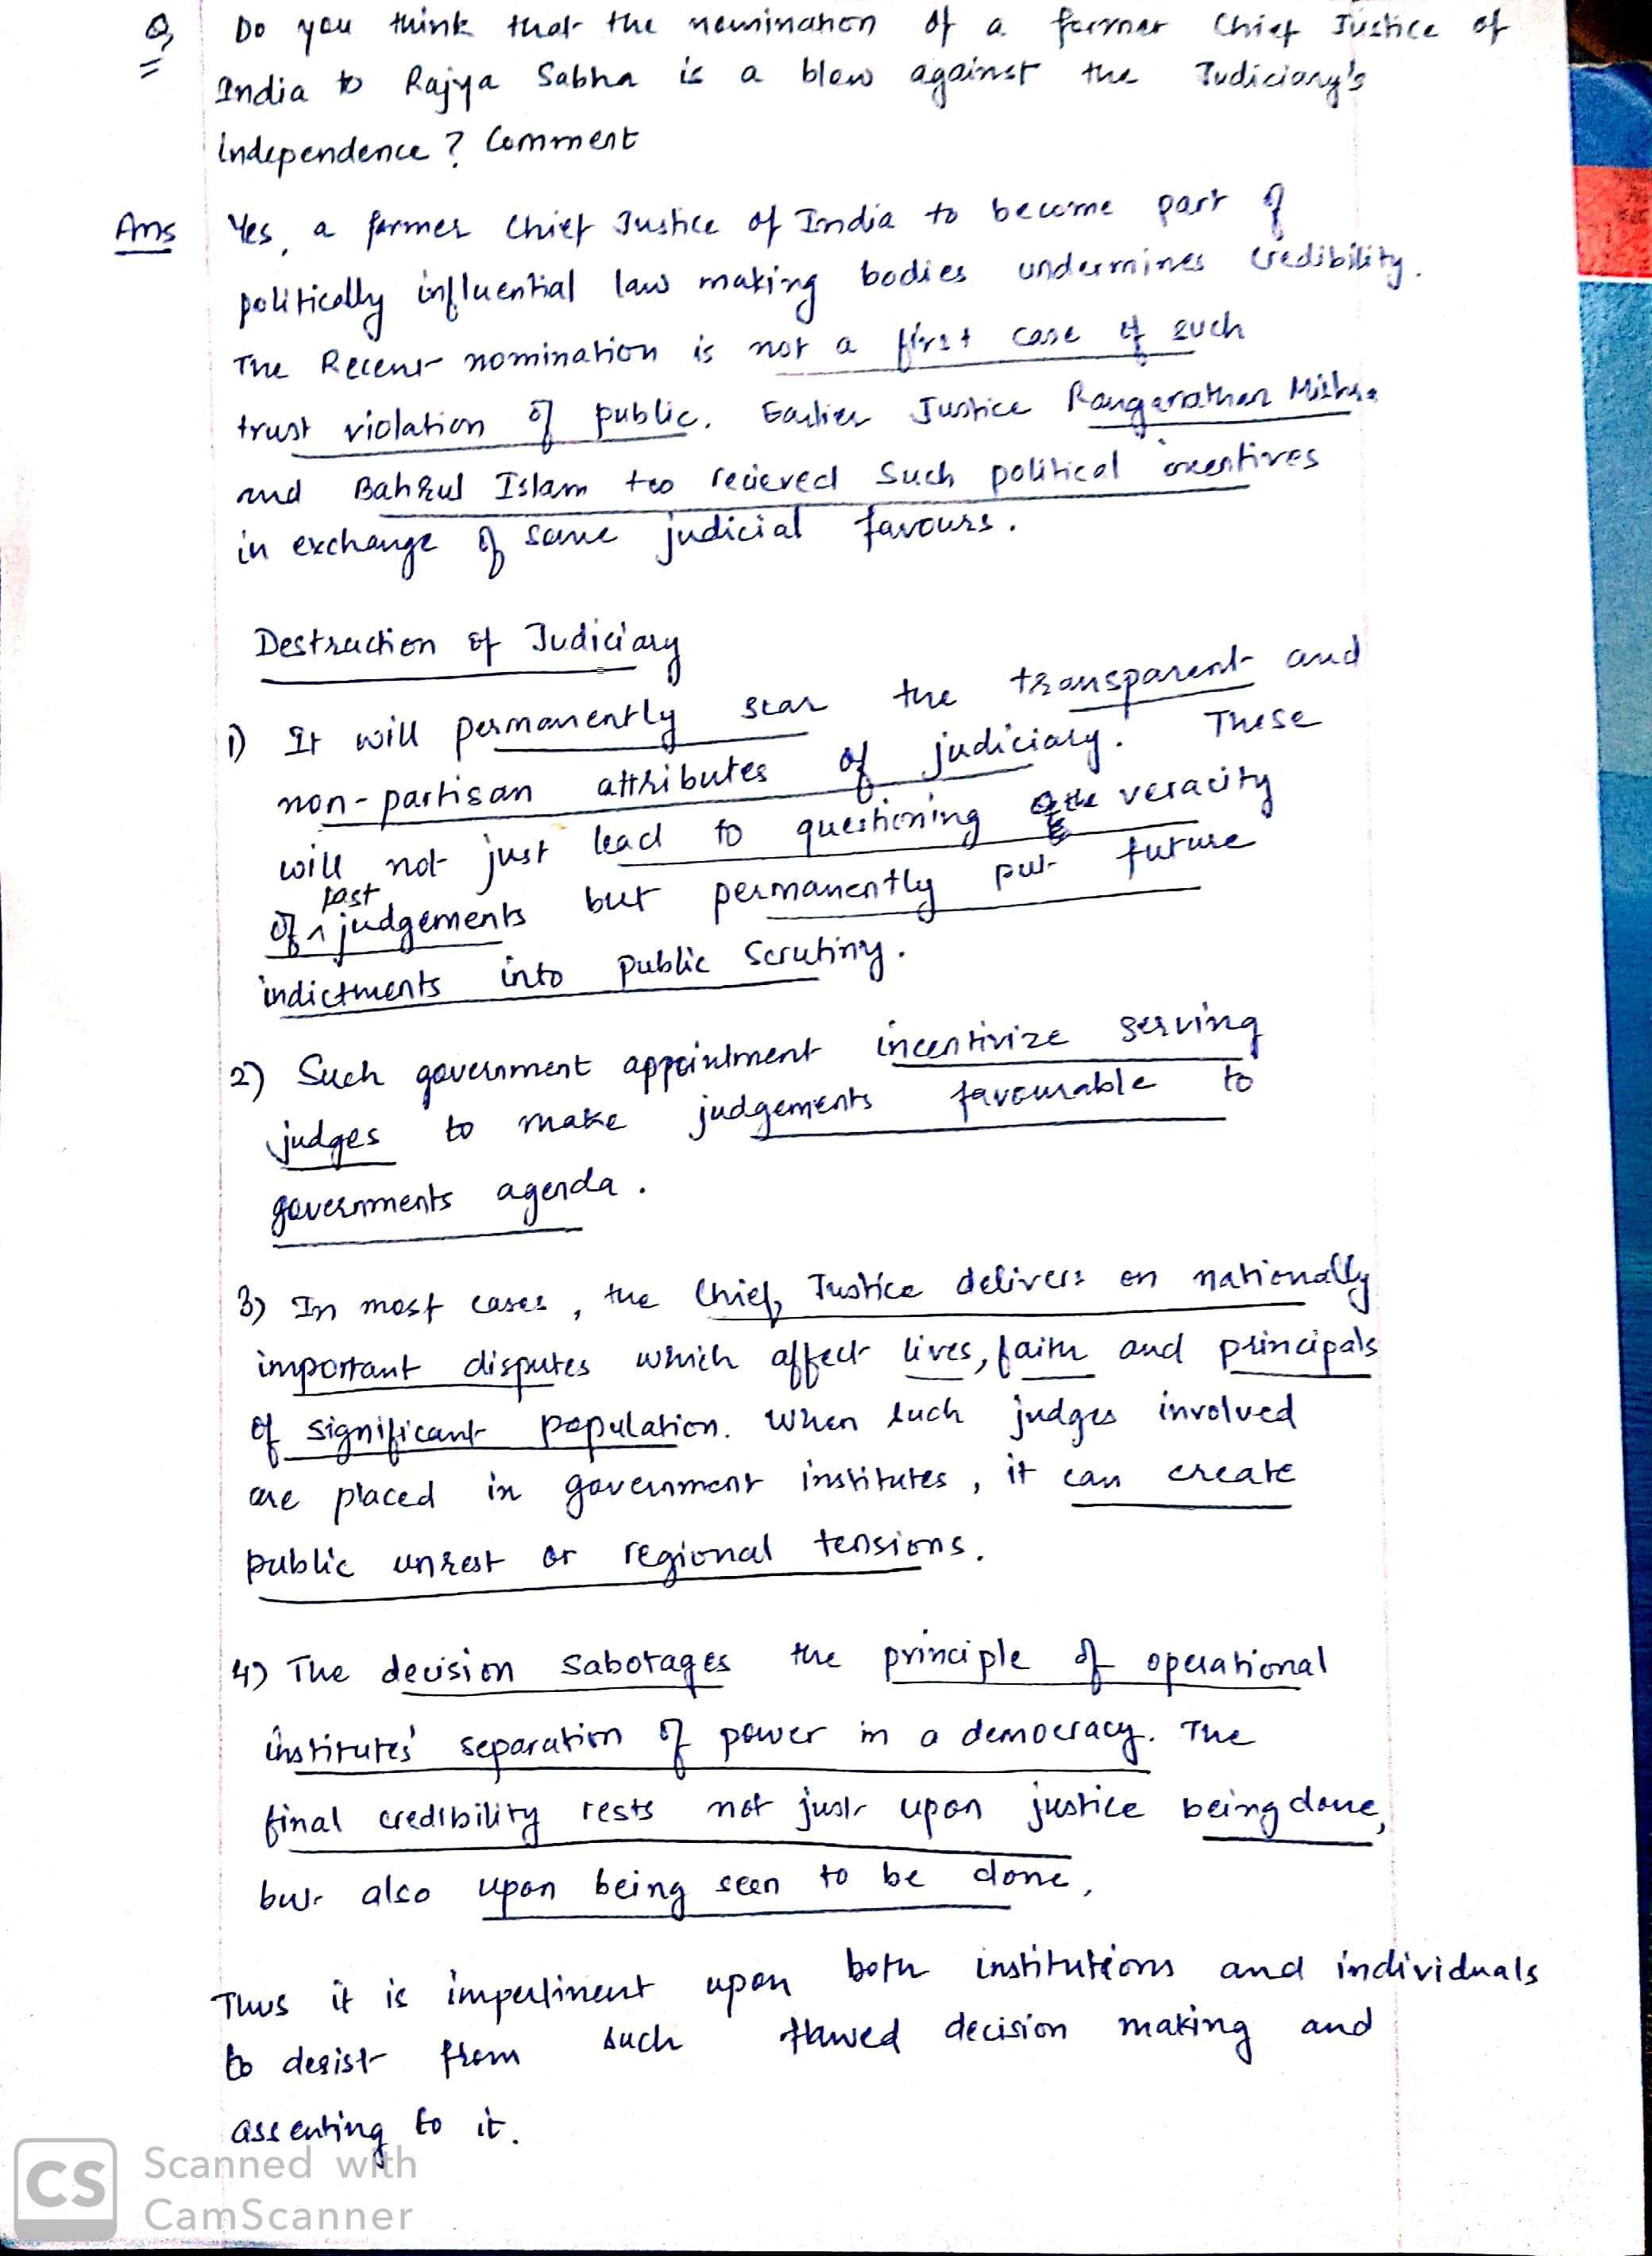 Q, Do you think that the nomination of a former Chief Justice of
India to Rajya Sabha is a blow against the Judiciary's
independence? Comment
Ans Yes, a former Chief Justice of India to become part of
politically influential law making bodies undermines credibility.
The Recent nomination is not a first case of such
trust violation of public. Earlier Justice Ranganathan Mishra
and Bahrul Islam too recieved such political incentives
in exchange of some judicial favours.
Destruction of Judiciary
1) It will permanently scar the transparent and
non-partisan attributes of judiciary. These
will not just lead to questioning the veracity
of past judgements but permanently put future
indictments into public scrutiny.
2) Such government appointment incentivize serving
judges to make judgements favourable to
governments agenda.
3) In most cases, the Chief Justice delivers on nationally
important disputes which affect lives, faith and principals
of significant population. When such judges involved
are placed in government institutes, it can create
public unrest or regional tensions.
4) The decision sabotages the principle of operational
institutes' separation of power in a democracy. The
final credibility rests not just upon justice being done,
but also upon being seen to be done.
Thus it is impertinent upon both institutions and individuals
to desist from such flawed decision making and
assenting to it.
CS Scanned with
CamScanner